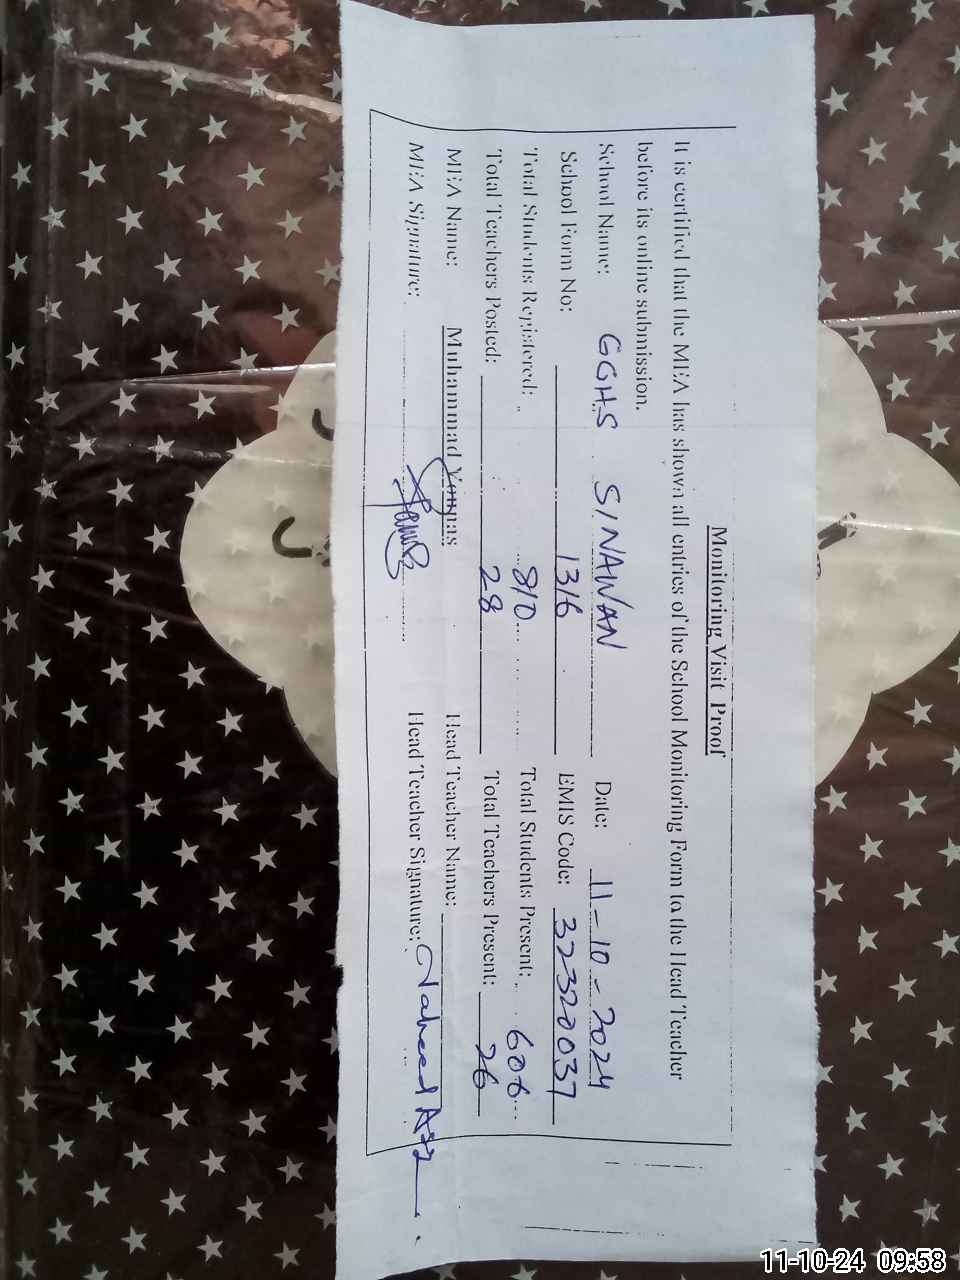 Monitoring Visit Proof
It is certified that the MEA has shown all entries of the School Monitoring Form to the Head Teacher
before its online submission.
School Name: GGHS SINAWAN Date: 11-10-2024
School Form No: 1316 EMIS Code: 32320037
Total Students Registered: 810 Total Students Present: 606
Total Teachers Posted: 28 Total Teachers Present: 26
MEA Name: Muhammad Younas Head Teacher Name:
MEA Signature: Head Teacher Signature: Naheed
11-10-24 09:58